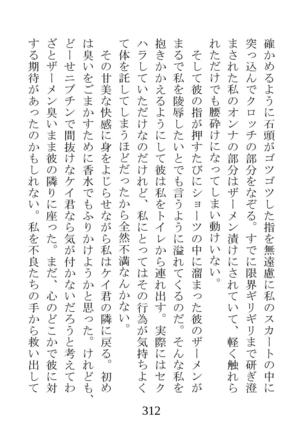 確かめるように石頭がゴツゴツした指を無遠慮に私のスカートの中に
突っ込んでクロッチの部分をなぞる。すでに限界ギリギリまで研ぎ澄
まされた私のオンナの部分はザーメン漬けにされていて、軽く触れら
れただけでも腰砕けになってしまい動けない。
そして彼の指が押すたびにショーツの中に溜まった彼のザーメンが
まるで私を陵辱したいとでも言うように溢れてくるのだ。そんな私を
抱きかかえるようにして彼は私をトイレから連れ出す。実際にはセク
ハラしていただけなのだけれど、私にとってはその行為が気持ちよく
て体を託してしまうほどだったから全然不満なんかない。
その甘美な快感に身をよじらせながら私はケイ君の隣に戻る。初め
は臭いをごまかすために香水でもふりかけようかと思った。けれども、
どーせニブチンで間抜けなケイ君なら気が付かないだろうと考えてわ
ざとザーメン臭いまま彼の隣りに座った。まだ、心のどこかで彼に対
する期待があったのかもしれない。私を不良たちの手から救い出して
312